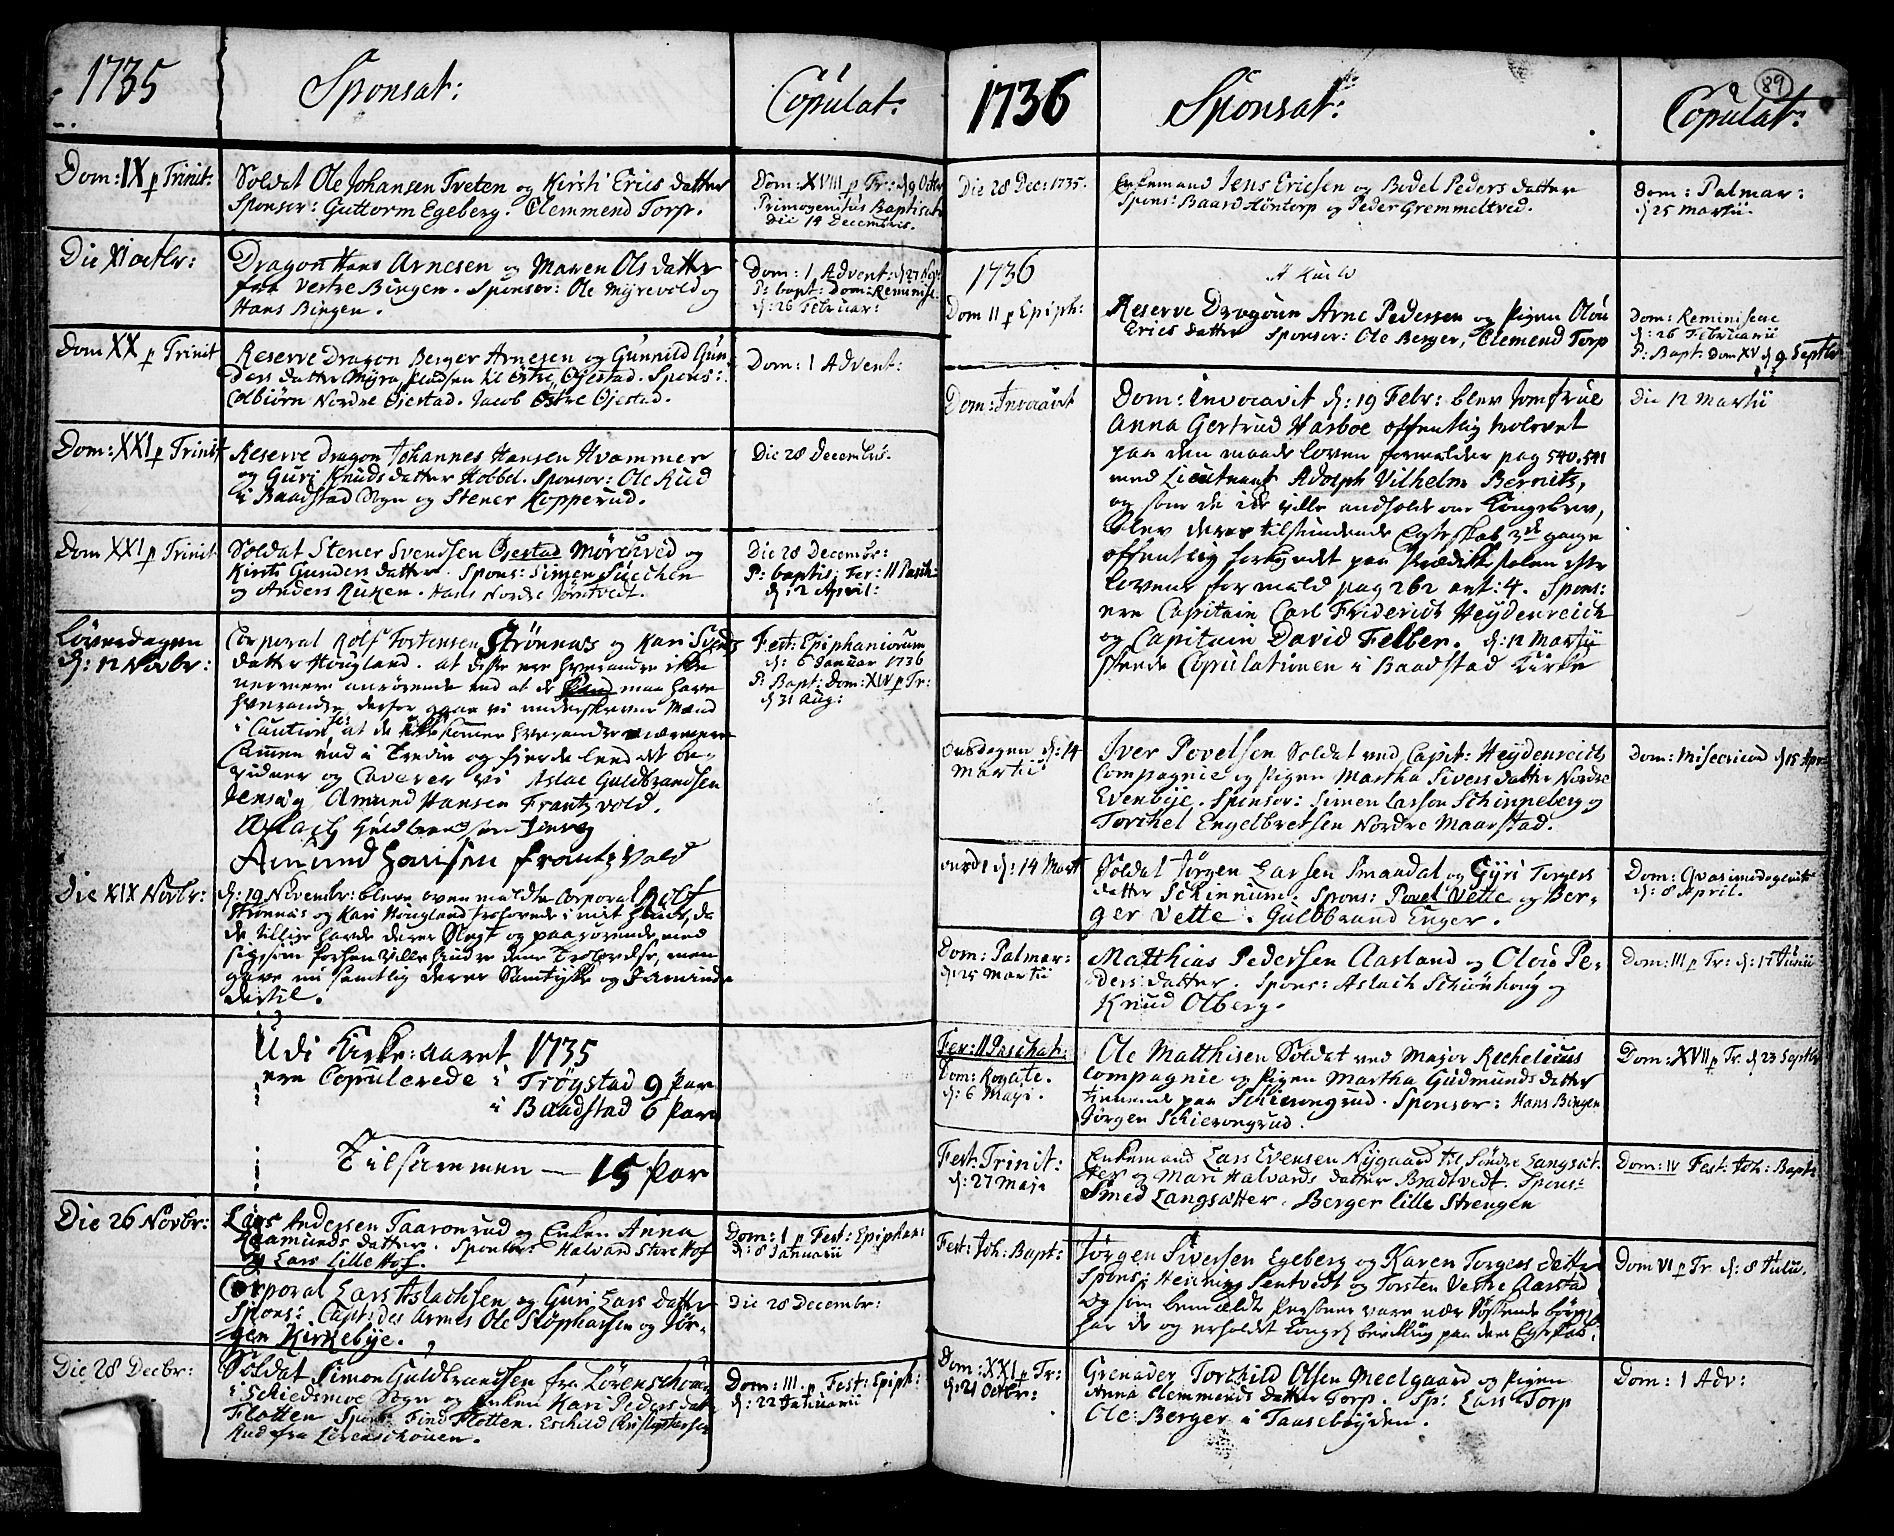 1735
Sponsat:
Copulat:
Dom: IX p Trinit:
Soldat Ole Johansen Tveten og Kirsti Erics datter
Sponsor: Guttorm Egeberg. Clemmend Torp.
Dom: XVIII p Tr: d 9 Octbr
Primogenitus Baptisat
Die 14 Decembris.
Die XI octbr:
Dragon Hans Arnesen og Maren Ols datter
fra Vestre Bingen. Sponsor: Ole Myrevold og
Hans Bingen.
Dom: 1 Advent: d: 27 Nov:
P: bapt: Dom: Reminisc:
d: 26 Februar:
Dom XX p Trinit
Reserve Dragon Berger Arnesen og Gunnild Gun-
ders datter Myra, pladsen til Østre Ojestad. Spons:
Colbiörn Nordre Ojestad. Jacob Østre Ojestad.
Dom: 1 Advent:
Dom: XXI p Trinit
Reserve Dragon Johannes Hansen Hvammer
og Guri Knuds datter Hobbel. Sponsor: Ole Rud
i Baadstad Sogn og Stener Kopperud.
Die 28 Decembris.
Dom XXI p Trinit
Soldat Stener Svendsen Ojestad Mörchved og
Kirsti Gunders datter. Spons: Simen Suechen
og Anders Kuken. Hans Nordre Jörntvedt.
Die 28 Decembr:
P: baptis: Fer: II Pasch:
d: 2 April:
Löverdagen
d: 12 Novbr:
Corporal Rolf Tortensen Strönnas og Kari Svends
datter Hougland. at disse ere hverandre icke
nermere anrörende end at de maa have
hverandre derfor gaar vi underskrevne Mænd
i Caution, at de icke komme hverandre nærmere
Sammen end i Tredie og fierde leed det be-
vidner og Caverer vi Aslac Guldbrandsen
Jensög Amund Hansen Frantzvold.
Aslach Guldbrandsen
Amund Hansen Frantz Vold
Fest: Epiphaniorum
d: 6 Januar 1736
P: Bapt: Dom: XIV p Tr:
d 31 Aug:
Die XIX Novbr:
d: 19 Novembr: bleve ovenmeldte Corporal Rolf
Strönnas og Kari Hougland trolovede i mit Huus, da
de tillige havde deres Slegt og paarörende med
sig, som forhen ville hindre dene Trolovelse, men
gave nu samtlig deres Samtykke og
dertil.
Udi Kirke-aaret 1735
ere Copulerede i Trögstad 9 Par
i Baadstad 6 Par
Tilsammen — 15 Par
Die 26 Novbr:
Lars Andersen Taaronrud og Enken Anna
Raamunds datter. Sponsor: Halvard Store Hof
og Lars Lille Hof.
Dom: 1 p Fest: Epiphan:
d: 8 Januarii
Corporal Lars Aslachsen og Guri Lars datter
Spons: Capt: des Armes Ole Stophassen og Jör-
gen Kirkebye.
Die 28 Decembr:
Die 28 Decbr:
Soldat Simon Guldbrandsen fra Lörenschoug
i Schiedsmoe Sogn og Enken Kari Peders dat:
Flotten Spons: Find Flotten. Eschild Christophersen
Rud fra Lörenschouen.
Dom: III. p Fest: Epiph:
d: 22 Januarii
1736
Sponsat:
Copulat:
89
Die 28 Dec: 1735.
Enkemand Jens Ericsen og Bodel Peders datter
Spons: Baard Höntorp og Peder Gremmeltved.
Dom: Palmar:
d 25 Martii.
1736
Dom II p Epiph:
Reserve Dragoun Arne Pedersen og Pigen Olou
Erics datter Sponsor: Ole Berger, Clemend Torp
Dom: Reminiscere
d: 26 Februarii
P: Bapt: Dom XV d 9 Septbr
Dom: Invocavit
Dom: Invocavit d: 19 Febr: blev Jomfrue
Anna Gertrud Harboe offentlig trolovet
paa den maade loven formelder pag 540. 541
med Lieutnant Adolph Vilhelm Bernitz,
og som de icke ville andholde om Kongebrev,
blev deres tilstundende Egteskab 3de gange
offentlig forkyndet paa Prædikestolen efter
lovens formeld pag 262 art: 4. Spons:
ere Capitain Carl Friderich Heydenreich
og Capitain David Felber. d: 12 Martii
skeede Copulationen i Baadstad Kirke
Die 12 Martii
Onsdagen d: 14
Martii
Iver Povelsen Soldat ved Capit: Heydenreichs
Compagnie og Pigen Martha Sivers datter Nordre
Evenbye. Sponsor: Simen Larsson Schinneberg og
Torchel Engelbretsen Nordre Maarstad.
Dom: Misericord d 15 Apr
onsd: d: 14 Mart
Soldat Jörgen Larsen Smaadal og Gyri Torgers
datter Schinnund. Spons: Povel Vette og Ber-
ger Vette. Guldbrand Enger.
Dom: Qvasimodogenit:
d: 8 April.
Dom: Palmar:
d 25 Martii
Matthias Pedersen Aasland og Olou Pe-
ders datter. Spons: Aslach Schiönhoug og
Knud Olberg.
Dom: III p Tr: d: 17 Junii
Fer: II Paschat:
Dom: Rogate.
d: 6 Maji.
Ole Matthisen Soldat ved Major Rechelieus
Compagnie og Pigen Martha Gudmunds datter
tienende paa Schierongrud. Sponsor: Hans Bingen
Jörgen Schierongrud.
Dom: XVII p Tr. d 23 Septbr
Fest: Trinit:
d: 27 Maji
Enkemand Lars Evensen Nygaard til Söndre Langsæt-
ter og Mari Halvards datter Bradtvedt. Spons:
Smed Langsætter. Berger Lille Strengen
Dom: IV Fest: Joh: Bapt:
Fest: Joh: Bapt:
Jörgen Siversen Egeberg og Karen Torgers datter
Spons: Henning Sentvedt og Torsten Vestre Aarstad
og som bemeldte Persone vare nær Söstende börn
har de og erholdet Kongel: bevilling paa dere Egteskab.
Dom VI p Tr d: 8 Julii.
Dom: XXI p Tr:
d: 21 Octbr:
Grenader Torchild Olsen Meelgaard og Pigen
Anna Clemmends datter Torp. Sp: Lars Torp
Ole Berger i Taaseböyden.
Dom: 1 Adv: